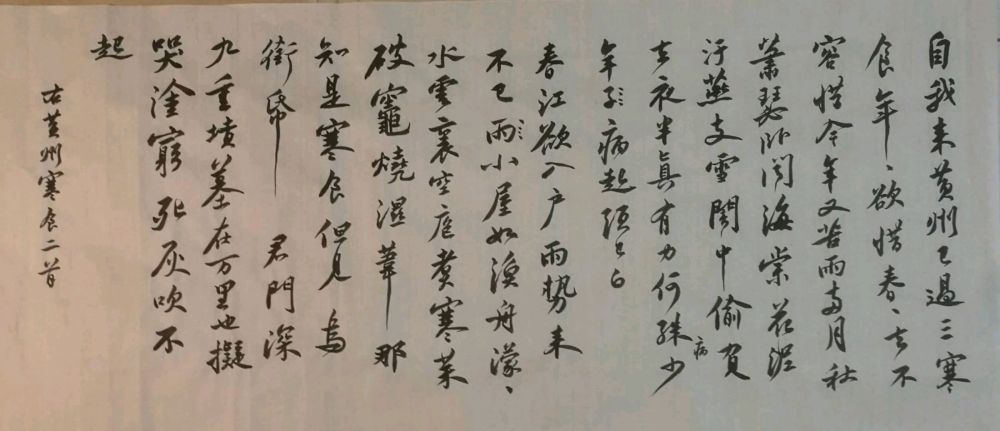 自我来黄州已過三寒
食年、欲惜春、去不
容惜今年又苦雨兩月秋
蕭瑟卧闻海棠花泥
汙燕支雪闇中偷負
去夜半真有力何殊少
病
年子病起頭已白
春江欲入户雨势来
不已雨小屋如漁舟濛、
水雲裏空庖煮寒菜
破竈燒濕葦那
知是寒食但見烏
銜帋君門深
九重墳墓在万里也擬
哭塗窮死灰吹不
起
右黄州寒食二首